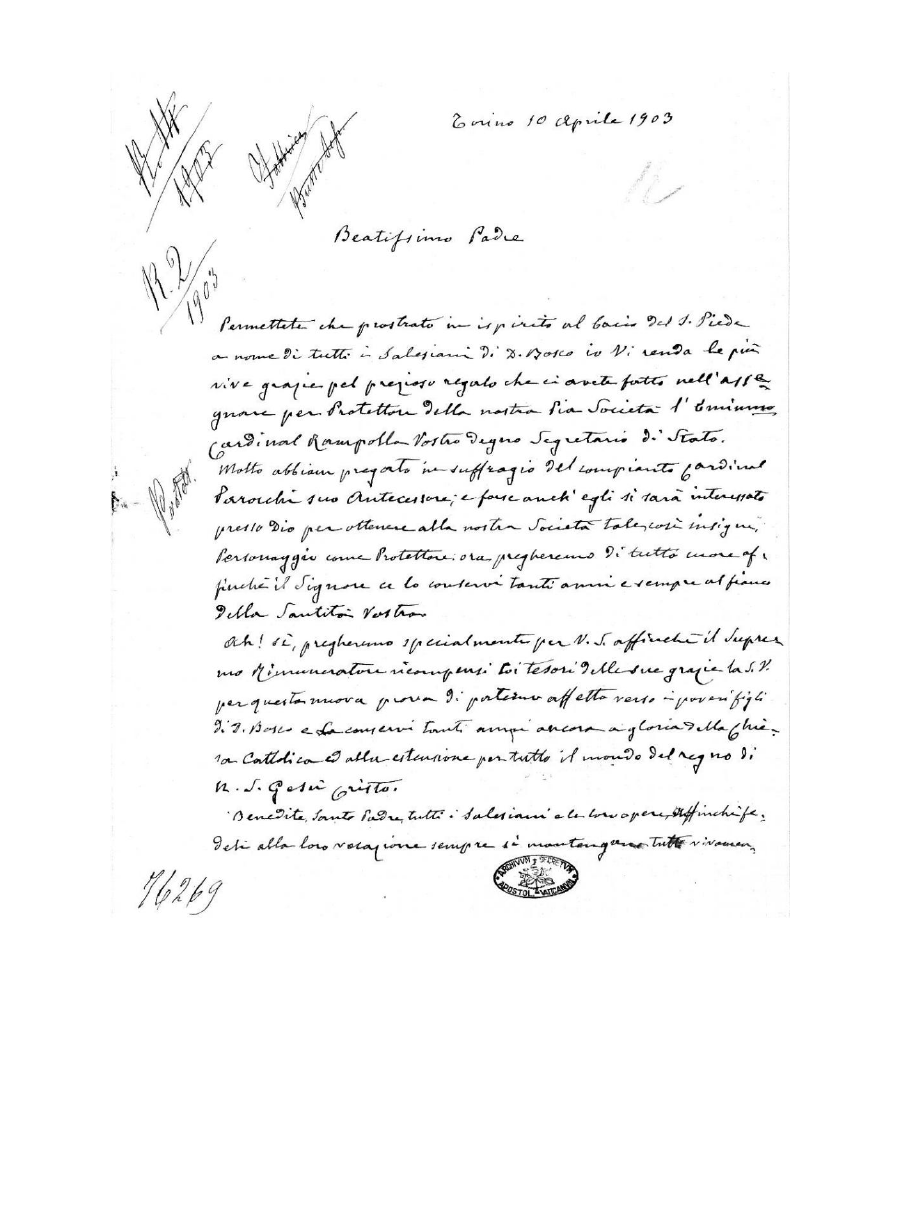 Torino 10 Aprile 1903
R. 2
1903
Beatissimo Padre
Permettete che prostrato in ispirito al bacio del S. Piede
a nome di tutti i Salesiani di D. Bosco io Vi renda le più
vive grazie pel prezioso regalo che ci avete fatto nell'asse-
gnare per Protettore della nostra Pia Società l'Eminmo
Cardinal Rampolla Vostro degno Segretario di Stato.
Molto abbiam pregato in suffragio del compianto Cardinal
Parocchi suo Antecessore; e forse anch'egli si sarà interessato
presso Dio per ottenere alla nostra Società tale, così insigne,
Personaggio come Protettore: ora pregheremo di tutto cuore af-
finchè il Signore ce lo conservi tanti anni e sempre al fianco
della Santità Vostra.
Ah! sì, pregheremo specialmente per V. S. affinchè il Supre-
mo Rimuneratore ricompensi coi tesori delle sue grazie la S. V.
per questa nuova prova di paterno affetto verso i poveri figli
di D. Bosco e La conservi tanti anni ancora a gloria della Chie-
sa Cattolica ed alla estensione per tutto il mondo del regno di
N. S. Gesù Cristo.
Benedite, Santo Padre, tutti i Salesiani e le loro opere, affinchè fe-
deli alla loro vocazione sempre si mantengano tutti vivamen-
ARCHIVVM SECRETVM
APOSTOL. VATICANVM
76269